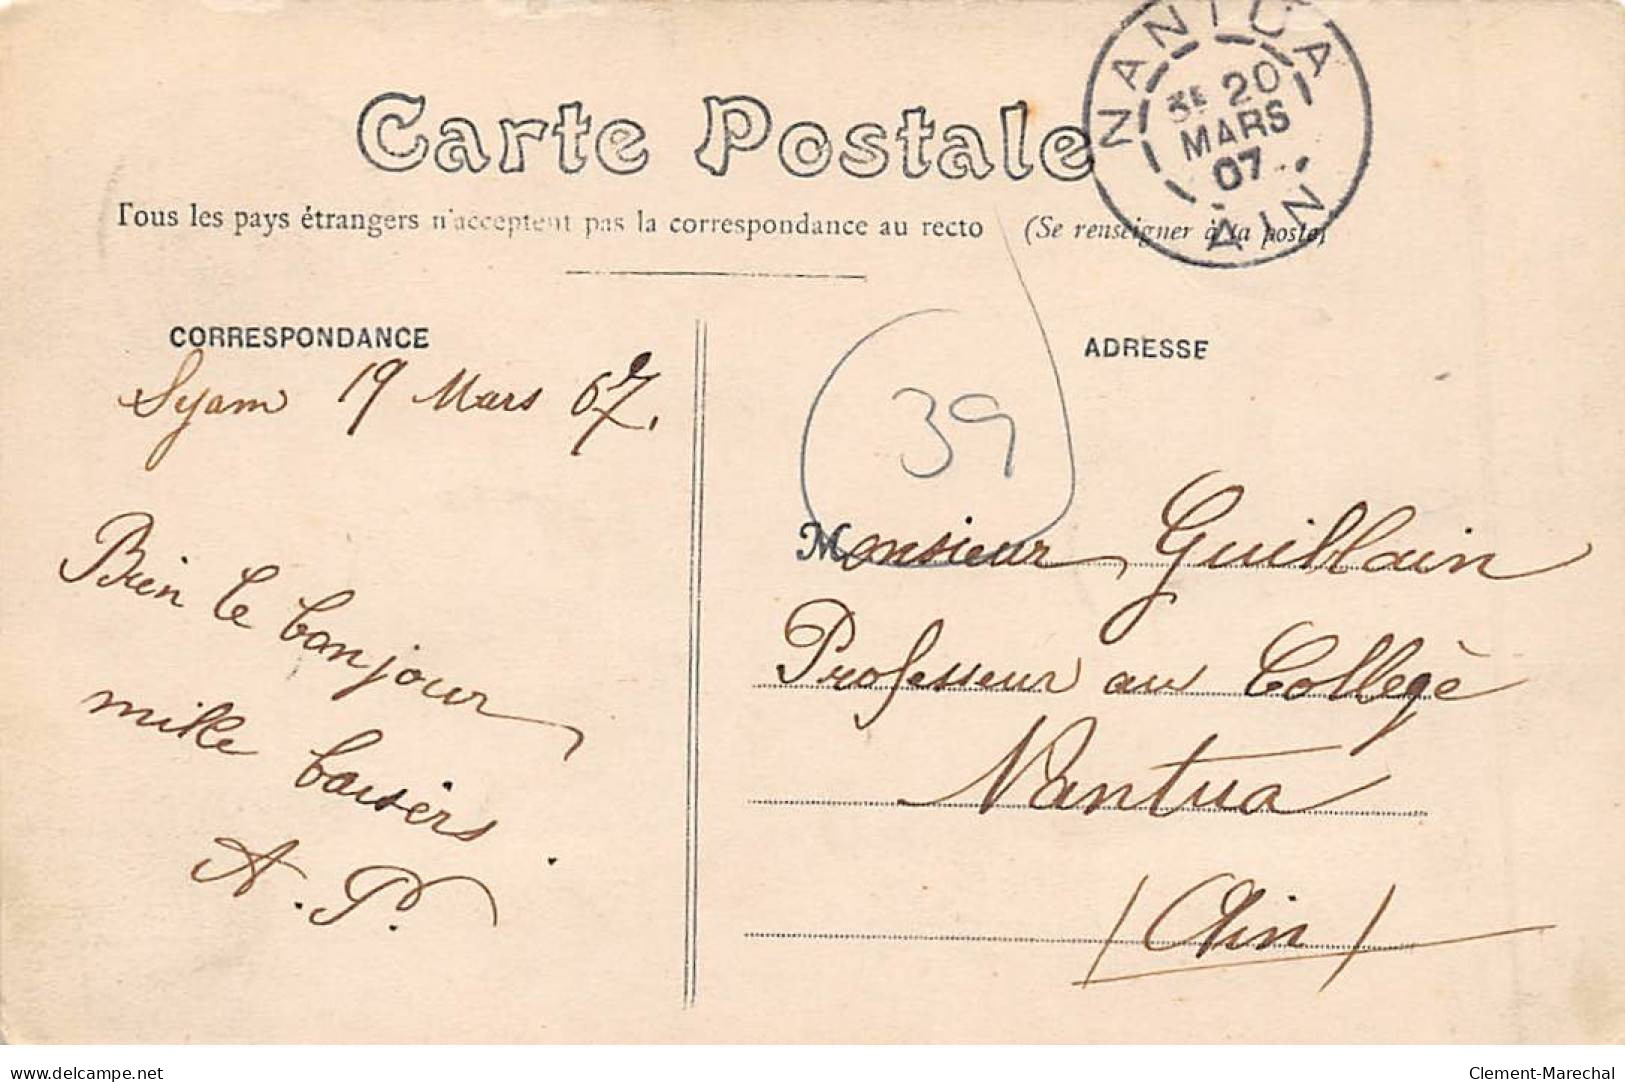 Carte Postale
Tous les pays étrangers n'acceptent pas la correspondance au recto (Se renseigner à la poste)
NANTUA
3E 20
MARS
07
AIN
CORRESPONDANCE
Syam 19 Mars 07.
Bien le bonjour
mille baisers
A. P.
39
ADRESSE
Monsieur Guillain
Professeur au Collège
Nantua
(Ain)
delcampe.net
Clement-Marechal